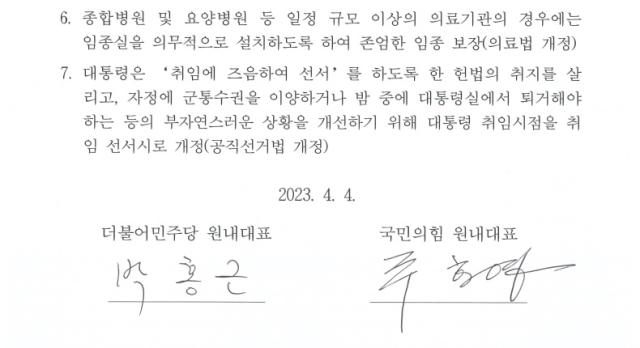 6. 종합병원 및 요양병원 등 일정 규모 이상의 의료기관의 경우에는
임종실을 의무적으로 설치하도록 하여 존엄한 임종 보장(의료법 개정)
7. 대통령은 ‘취임에 즈음하여 선서’를 하도록 한 헌법의 취지를 살
리고, 자정에 군통수권을 이양하거나 밤 중에 대통령실에서 퇴거해야
하는 등의 부자연스러운 상황을 개선하기 위해 대통령 취임시점을 취
임 선서시로 개정(공직선거법 개정)
2023. 4. 4.
더불어민주당 원내대표 국민의힘 원내대표
박 홍 근 주 호영